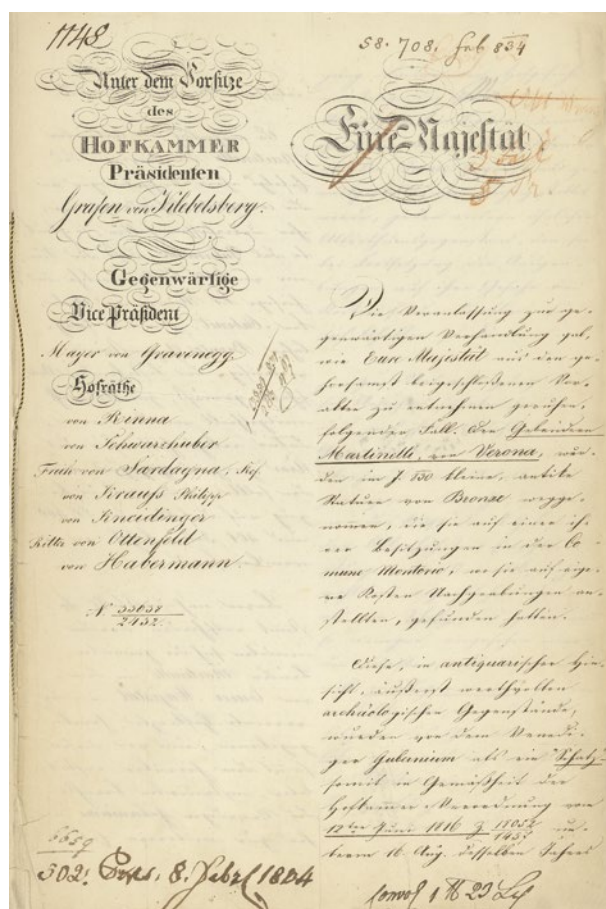 1748
Unter dem Vorsitze
des
HOFKAMMER
Präsidenten
Grafen von Klebelsberg.
Gegenwärtige
Vice Präsident
Mayer von Gravenegg.
Hofräthe
von Rinna
von Schwarzhuber
von Sardagna, Ref.
von Krauß Philipp
von Kneidinger
Ritter von Ottenfeld
von Habermann.
N. 33038
2432
6659
502. 8. Febr. 1834
58. 708. Feb 834
Eure Majestät
Die Veranlassung zur ge-
genwärtigen Verhandlung gab,
wie Eure Majestät aus den ge-
horsamst beigeschloßenen Vor-
akten zu entnehmen geruhen,
folgender Fall. Den Gebrüdern
Martinelli, von Verona, wur-
den im J. 830 kleine, antike
Statuen von Bronze wegge-
nomen, die sie auf einer ih-
rer Besitzungen in der Co-
mune Montorio, wo sie auf eige-
ne Kosten Nachgrabungen an-
stellten, gefunden hatten.
Diese, in antiquarischer Hin-
sicht, äußerst werthvollen
archäologischen Gegenstände,
wurden von dem Venedi-
ger Gubernium als ein Schatz,
somit in Gemäßheit der
Hofkammer Verordnung vom
12ten Juni 1816 Z. 18052
1453 un-
term 16. Aug. desselben Jahres